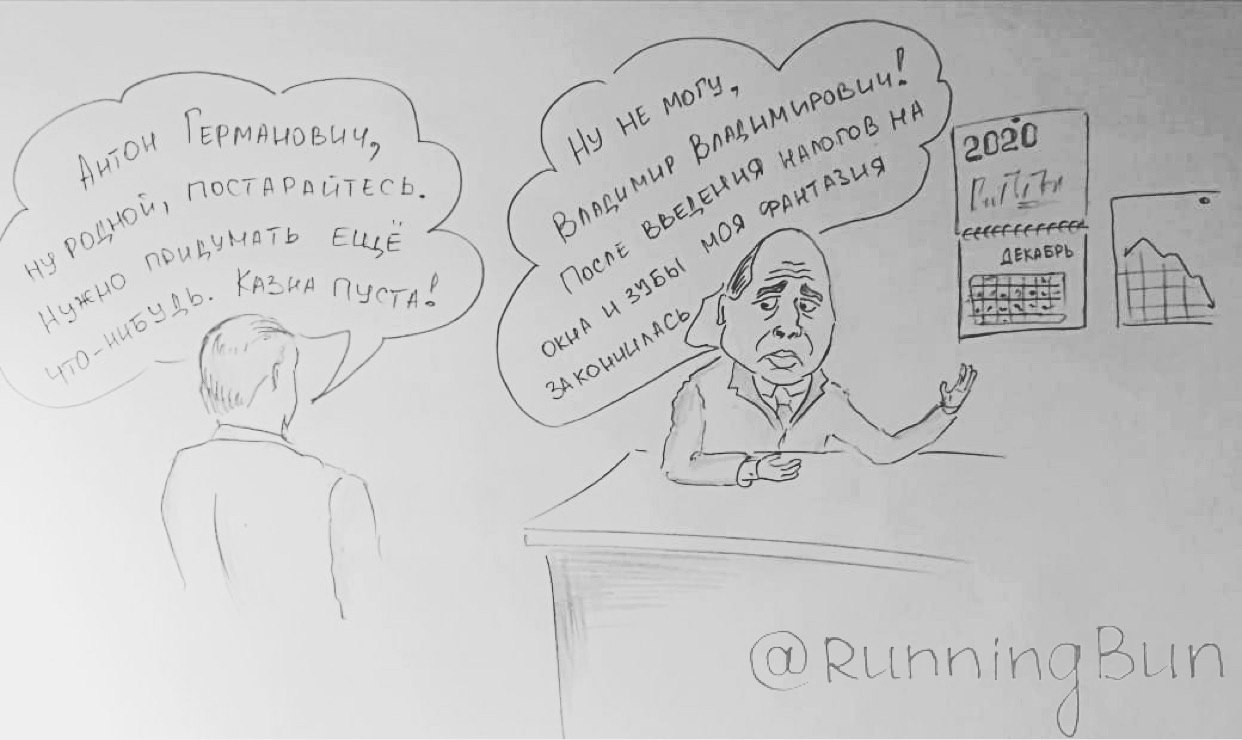 Антон Германович,
ну родной, постарайтесь.
Нужно придумать ещё
что-нибудь. Казна пуста!
Ну не могу,
Владимир Владимирович!
После введения налогов на
окна и зубы моя фантазия
закончилась
2020
ДЕКАБРЬ
@RunningBun